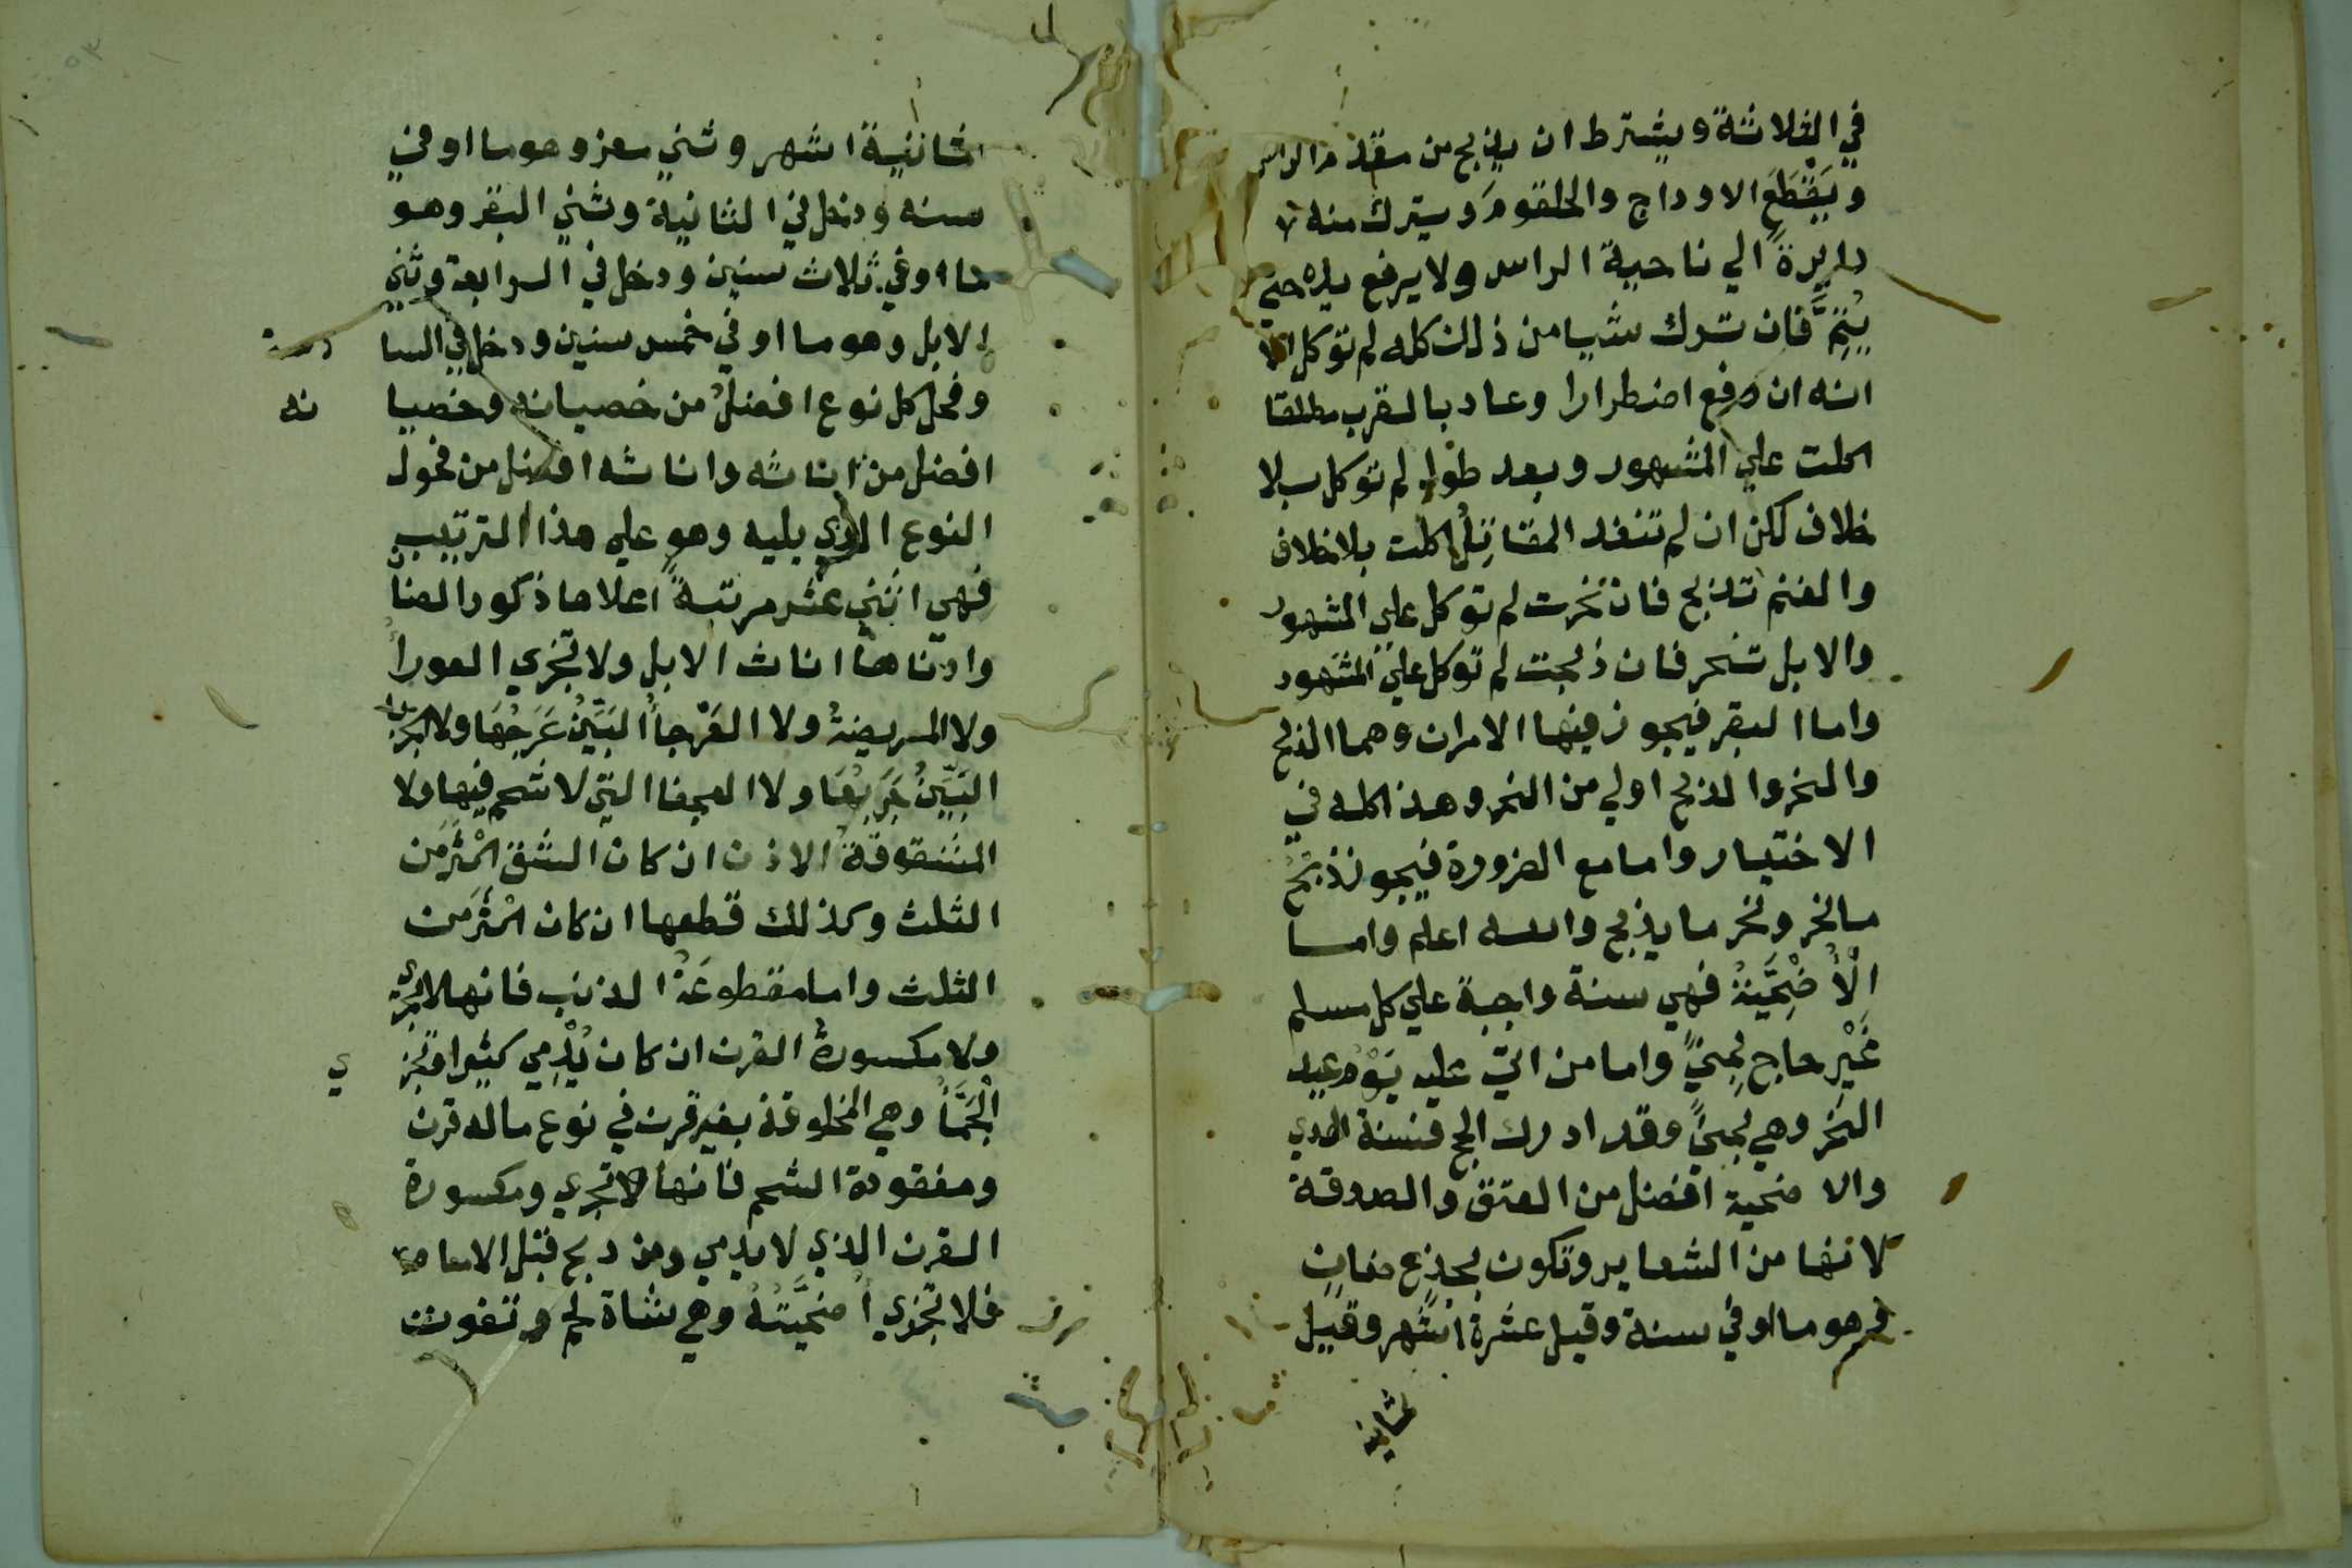 في الثلاثة ويشترط ان يذبح من مقدم الراس
ويَقْطَعَ الاوداج والحلقومَ ويترك منه
دايرةً الي ناحية الراس ولا يرفع يده حتي
يُتِمَّ فان ترك شيا من ذلك كله لم توكل الا
انه ان رفع اضطرارا وعاد بالقرب مطلقا
اكلت علي المشهور وبعد طول لم توكل بلا
خلاف لكن ان لم تنفد المقاتِلُ اكلت بلا خلاف
والغنم تذبح فان نحرت لم توكل علي المشهور
والابل تنحر فان ذبحت لم توكل علي المشهور
واما البقر فيجوز فيها الامران وهما الذبح
والنحر والذبح اولي من النحر وهذا كله في
الاختيار واما مع الضرورة فيجوز ذبح
ما نحر ونحر ما يذبح والله اعلم واما
الْأُضْحِيَّةُ فهي سنة واجبة علي كل مسلم
غَيْرِ حاج بِمِنيً واما من اتي عليه يَوْم عيد
النحر وهي بمنيً وقد ادرك الحج فسنة الهدي
والاضحية افضل من العتق والصدقة
لانها من الشعاير وتكون بجذع ضان
وهو ما اوفي سنة وقيل عشرة اشهر وقيل
ثمانية
ثمانية اشهر وثني معز وهو ما اوفي
سنه ودخل في الثانية وثني البقر وهو
ما اوفي ثلاث سنين ودخل في الرابعة وثني
الابل وهو ما اوفي خمس سنين ودخل في السا دسة
وفحل كل نوع افضل من خصيانه وخصيا نه
افضل من اناثه واناثه افضل من فحول
النوع الذي يليه وهو علي هذا الترتيب
فهي اثني عشر مرتبةً اعلاها ذكور الضان
وادناها اناث الابل ولا تجزي العورا
ولا المريضةُ ولا العَرْجاُ البَيِّنُ عَرَجُهَا ولا الجربا
البَيِّنُ جَرَبُهَا ولا العجفا التي لا شحم فيها ولا
المشقوقةُ الاذن ان كان الشق اكْثَرَ من
الثلث وكذلك قطعها ان كان اكْثَرَ من
الثلث واما مقطوعَةُ الذنب فانها لا تجزي
ولا مكسورةُ القرن ان كان يُدْمِي كثيرا وتجز ي
الْجَمَّاُ وهي المخلوقة بغير قرن في نوع ما له قرن
ومفقودة الشحم فانها لا تجزي ومكسورة
القرن الذي لا يدمي ومن دبح قبل الامام
فلا تجزي اُضحيَّتُهُ وهي شاة لحم وتفوت